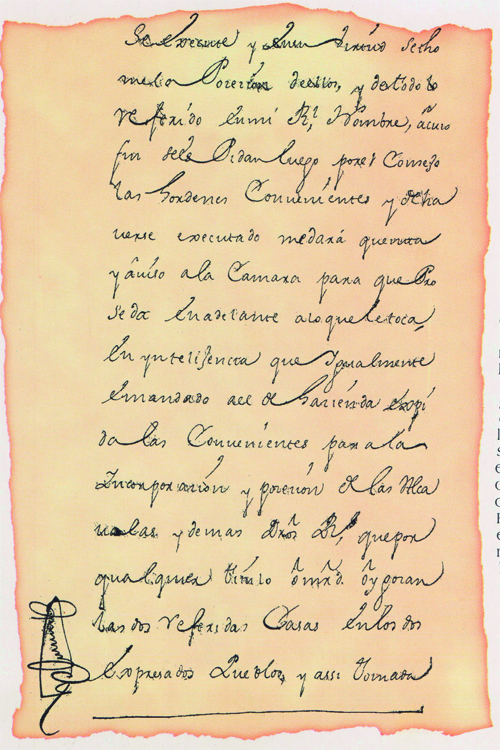 Se execute y en su virtud se tho
me la Posesion de ellos, y de todo lo
Referido en mi Rl. Nombre, á cuio
fin se les Pidan luego por el Consejo
las hordenes Convenientes y de ha
verse executado me dará quenta
y áviso a la Camara para que Pro
seda en adelante a lo que le toca,
En ynteligencia que Igualmente
é mandado a el de hacienda expi
da las Convenientes para la
Incorporasión y posesión de las Alca
valas y demas Dros. Rs. que por
qualquier título ó mrd. oy gozan
las dos referidas Casas en los dos
Expresados Pueblos, y assi tomada